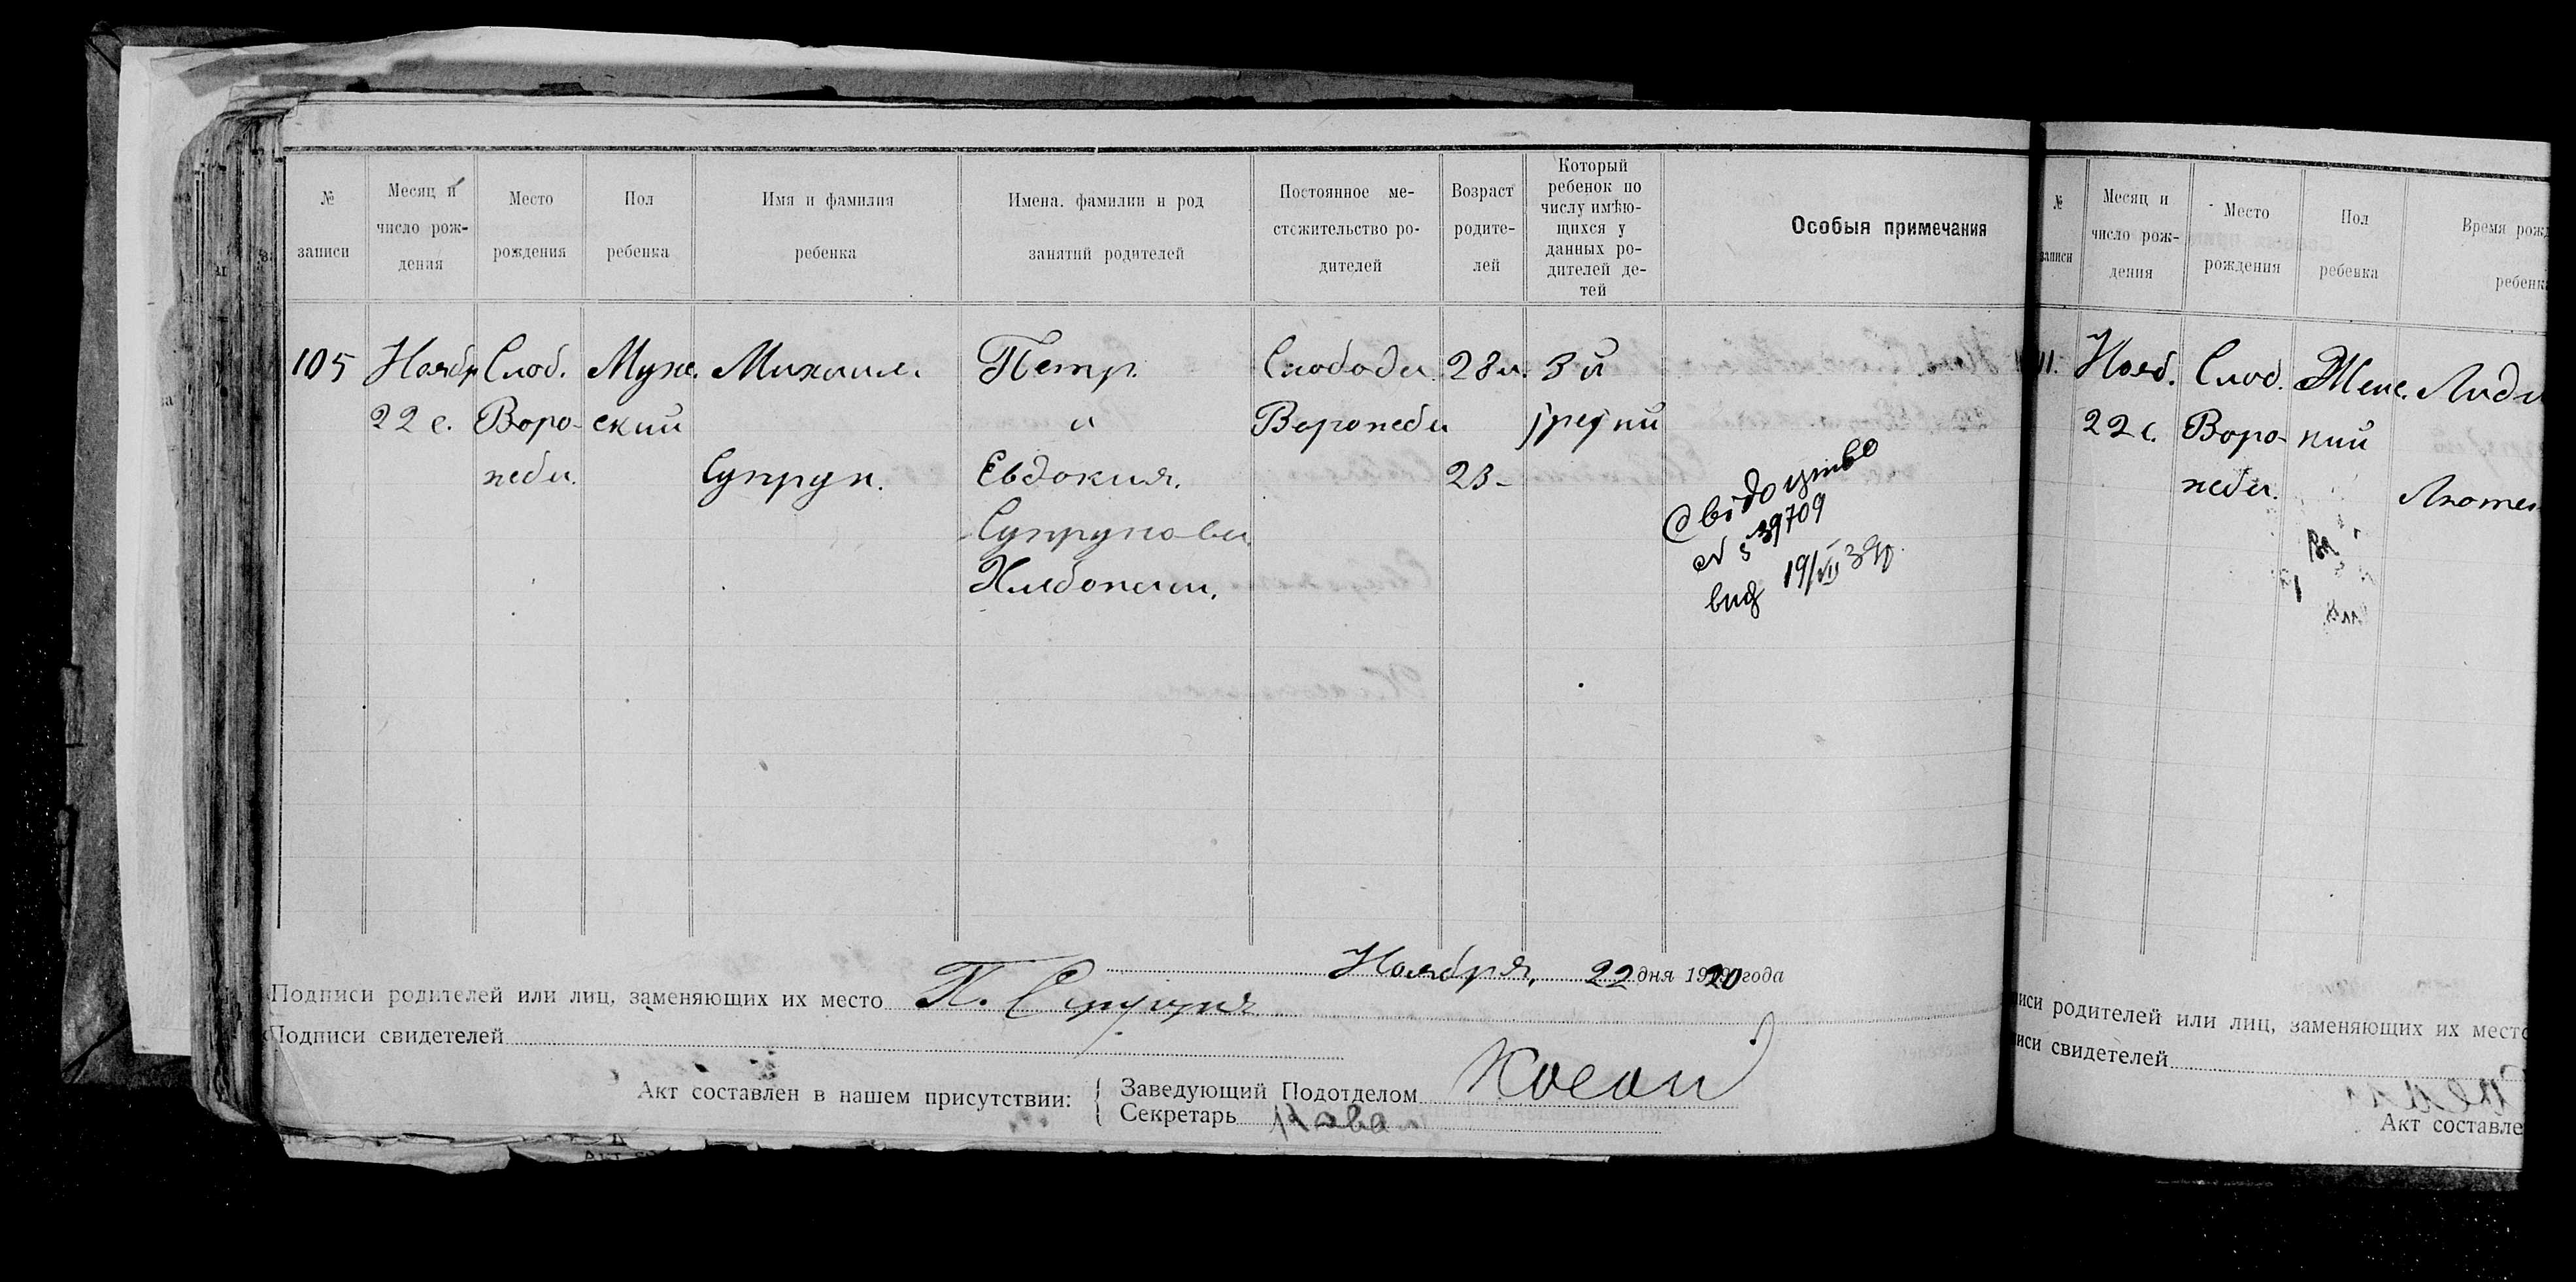 №
записи
Месяц и
число рож-
дения
Место
рождения
Пол
ребенка
Имя и фамилия
ребенка
Имена. фамилии и род
занятий родителей
Постоянное ме-
стожительство ро-
дителей
Возраст
родите-
лей
Который
ребенок по
числу имѣю-
щихся у
данных ро-
дителей де-
тей
Особыя примечания
105
Ноябр
22 с.
Слоб.
Воро-
нежи.
Муже.
ский
Михаил.
Супрун.
Петр.
и
Евдокия.
Супрунова.
Хлебопаш.
Слободы
Воронежи
28 л.
23 -
3 й
Свідоцтво
N 39709
вид 19/VII 39р.
Ноября, 22 дня 1920 года
Подписи родителей или лиц, заменяющих их место П. Супрун
Подписи свидетелей
Акт составлен в нашем присутствии:
Заведующий Подотделом
Секретарь
№
записи
Месяц и
число рож-
дения
Место
рождения
Пол
ребенка
Время рожд
ребенк
11.
Нояб.
22 с.
Слоб.
Воро-
нежи.
Женс.
кий
Лиди
иси родителей или лиц, заменяющих их мест
иси свидетелей
Акт составле